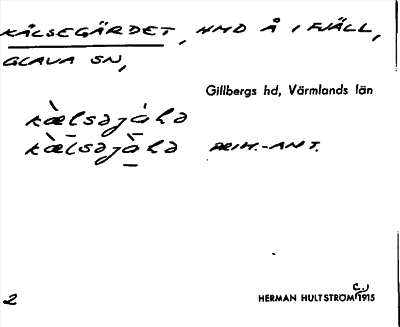 KÅLSEGÄRDET, HMD Å I FJÄLL,
GLAVA SN,
Gillbergs hd, Värmlands län
kæ̀lsəjálə
kæ̀lsəjàlə PRIM.-ANT.
2
HERMAN HULTSTRÖM (c.) 1915